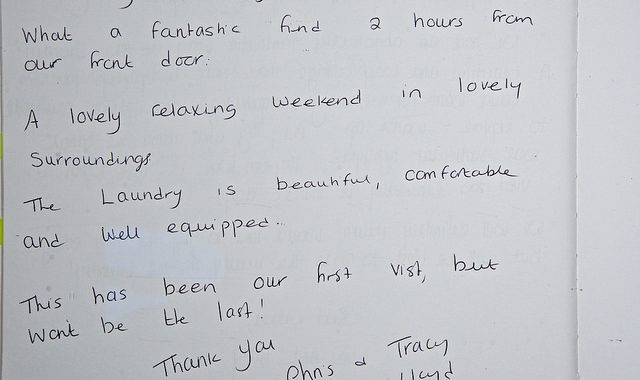 What a fantastic find 2 hours from
our front door.
A lovely relaxing weekend in lovely
Surroundings
The Laundry is beautiful, comfortable
and well equipped.
This has been our first visit, but
Wont be the last!
Thank you
&  Tracy